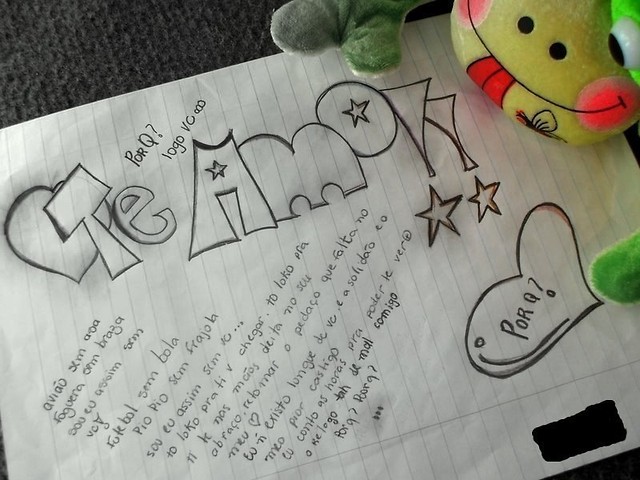 Te AMO!!
PorQ?
logo vc
PorQ?
avião sem asa
fogueira sem braza
sou eu assim sem
voç
futebol sem bola
Piu Piu sem frajola
sou eu assim sem vc...
to loko pra ti v chegar. to loko pra
ti te nas mãos deita no seu
abraço retornar o pedaço que falta no
meu ♡
Eu ñ existo longe de vc e a solidão e o
meu pior castigo
Eu conto as horas pra poder te ver
o relogo tah de mal comigo
Porq? Porq?
...